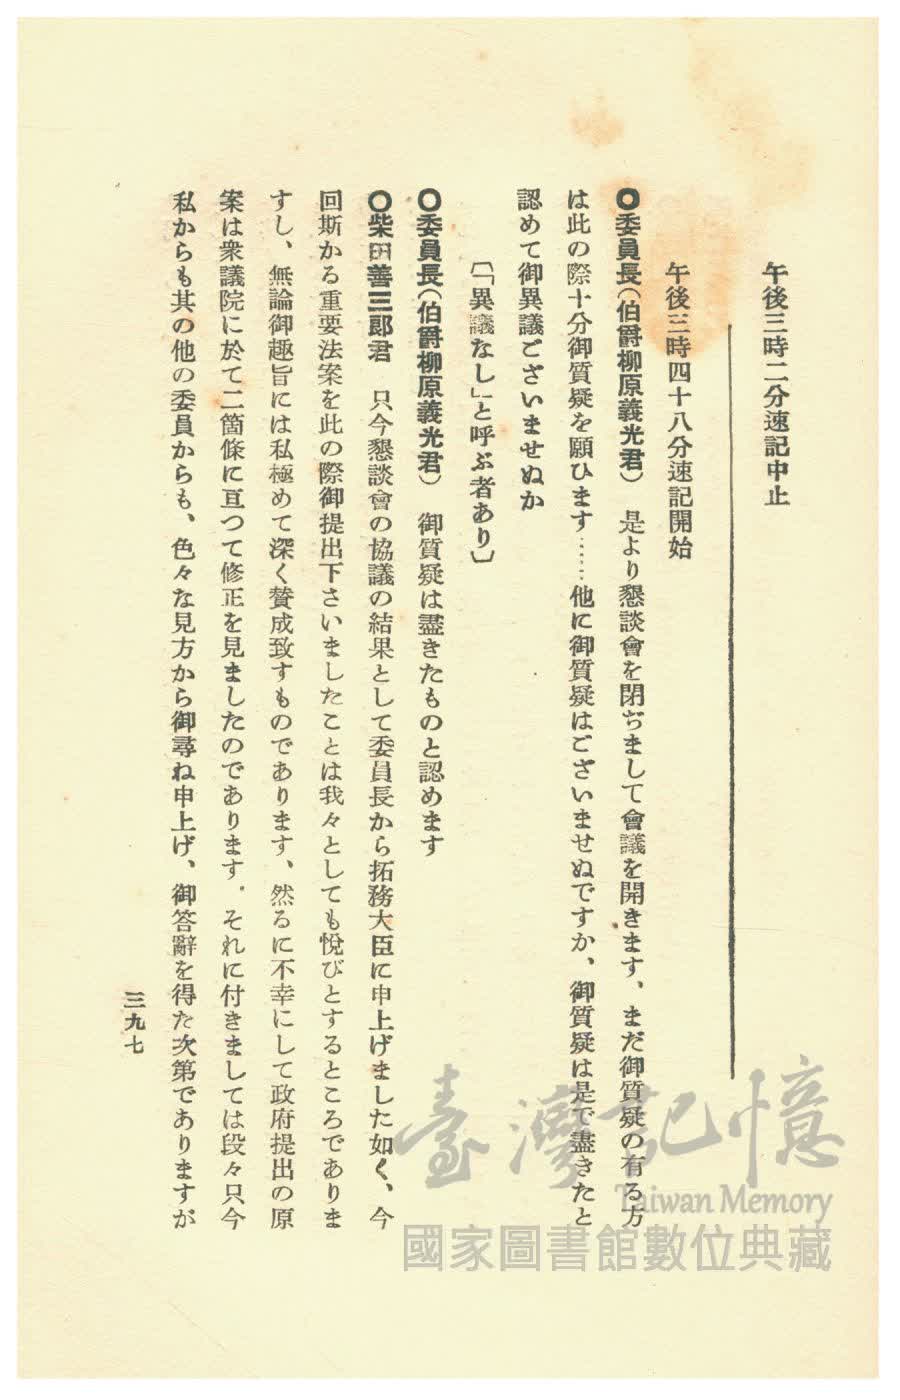 午後三時二分速記中止
午後三時四十八分速記開始
〇委員長(伯爵柳原義光君) 是より懇談會を閉ぢまして會議を開きます、まだ御質疑の有る方
は此の際十分御質疑を願ひます……他に御質疑はございませぬですか、御質疑は是で盡きたと
認めて御異議ございませぬか
〔「異議なし」と呼ぶ者あり〕
〇委員長(伯爵柳原義光君) 御質疑は盡きたものと認めます
〇柴田善三郎君 只今懇談會の協議の結果として委員長から拓務大臣に申上げました如く、今
回斯かる重要法案を此の際御提出下さいましたことは我々としても悅びとするところでありま
すし、無論御趣旨には私極めて深く贊成致すものであります、然るに不幸にして政府提出の原
案は衆議院に於て二箇條に亙つて修正を見ましたのであります。それに付きましては段々只今
私からも其の他の委員からも、色々な見方から御尋ね申上げ、御答辭を得た次第でありますが
三九七
臺灣記憶
Taiwan Memory
國家圖書館數位典藏